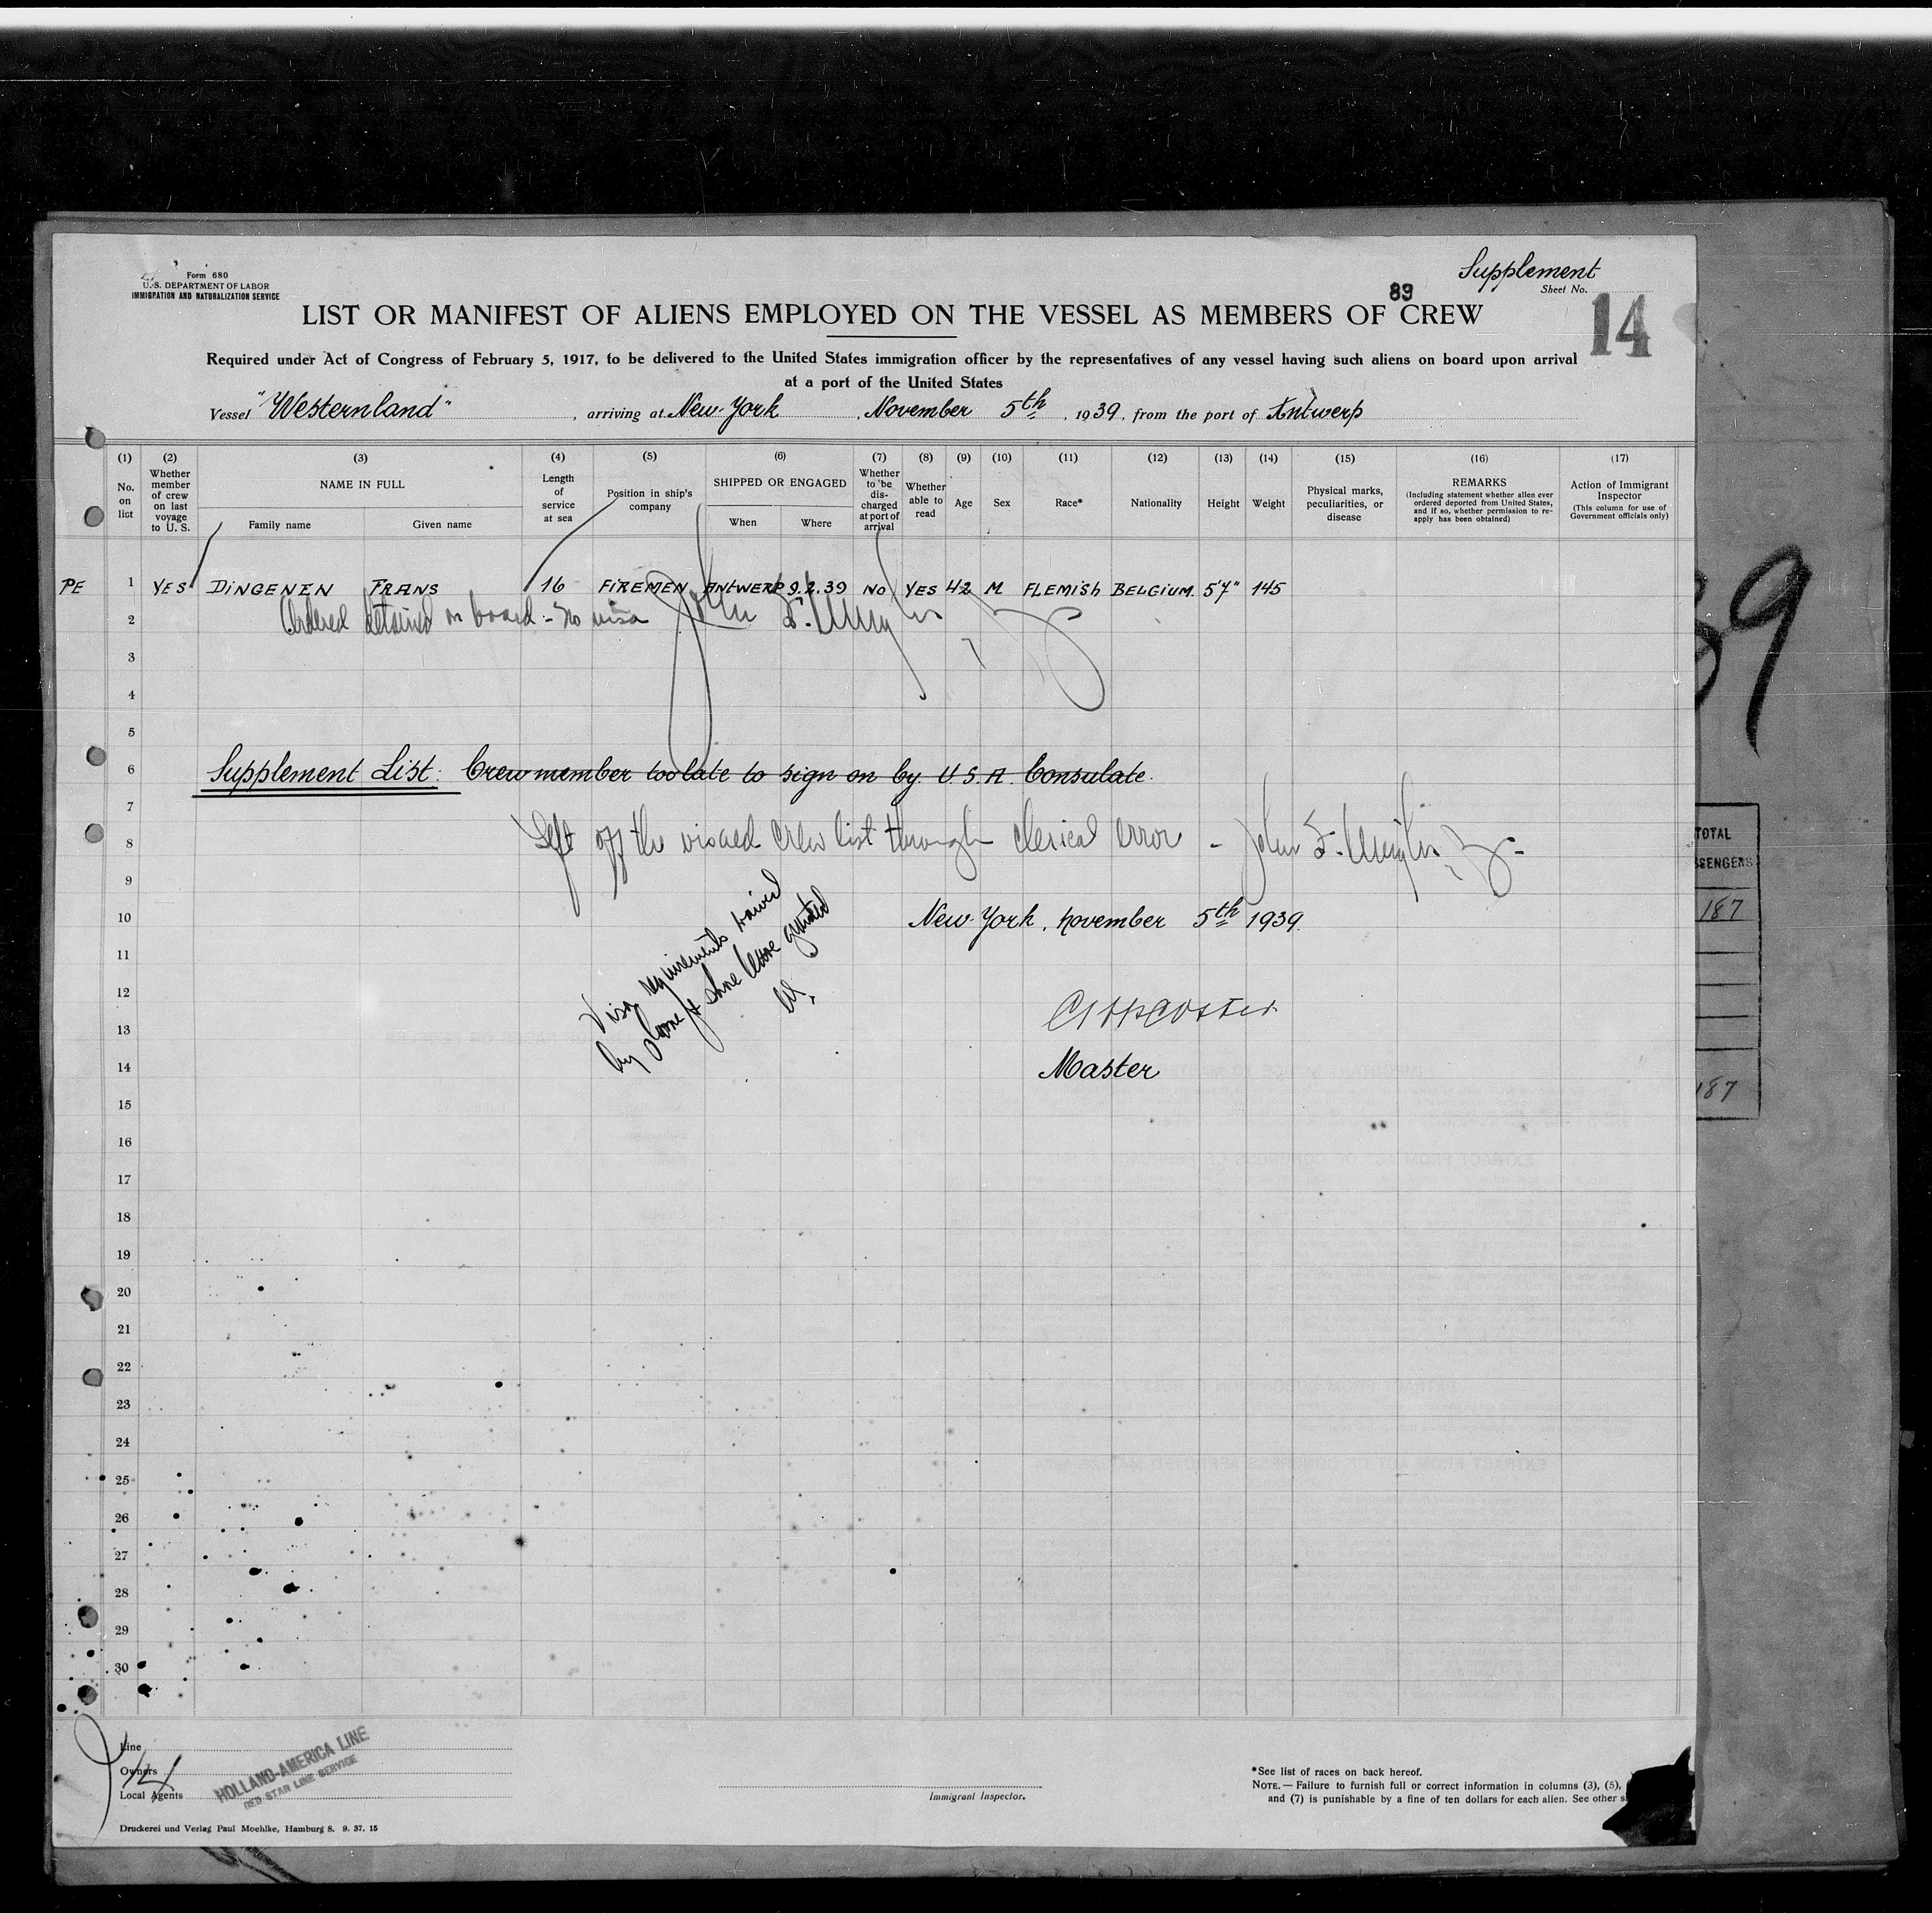 Form 680
U.S. DEPARTMENT OF LABOR
IMMIGRATION AND NATURALIZATION SERVICE
Supplement
Sheet No.
89
14
LIST OR MANIFEST OF ALIENS EMPLOYED ON THE VESSEL AS MEMBERS OF CREW
Required under Act of Congress of February 5, 1917, to be delivered to the United States immigration officer by the representatives of any vessel having such aliens on board upon arrival
at a port of the United States
Vessel "Westernland", arriving at New-York, November 5th, 1939, from the port of Antwerp
(1) No. on list
(2) Whether member of crew on last voyage to U. S.
(3) NAME IN FULL Family name Given name
(4) Length of service at sea
(5) Position in ship's company
(6) SHIPPED OR ENGAGED When Where
(7) Whether to be discharged at port of arrival
(8) Whether able to read
(9) Age
(10) Sex
(11) Race*
(12) Nationality
(13) Height
(14) Weight
(15) Physical marks, peculiarities, or disease
(16) REMARKS (Including statement whether alien ever ordered deported from United States, and if so, whether permission to reapply has been obtained)
(17) Action of Immigrant Inspector (This column for use of Government officials only)
PE 1 YES DINGENEN FRANS 16 FIREMEN ANTWERP 9.2.39 NO YES 42 M FLEMISH BELGIUM. 5'7" 145
2 Ordered detained on board - no visa John F.
3
4
5
6 Supplement List: Crewmember too late to sign on by U.S.A. Consulate.
7
8 Left off the visaed crew list through clerical error - John F.
9
10 New-York, november 5th 1939.
Visa requirements waived
by shore leave granted
11
12
13
Master
14
15
16
17
18
19
20
21
22
23
24
25
26
27
28
29
30
Line
Owners
Local Agents
14
HOLLAND-AMERICA LINE
RED STAR LINE SERVICE
Immigrant Inspector.
*See list of races on back hereof.
NOTE.— Failure to furnish full or correct information in columns (3), (5),
and (7) is punishable by a fine of ten dollars for each alien. See other
Druckerei und Verlag Paul Moehlke, Hamburg 8. 9. 37. 15
39
TOTAL
187
187